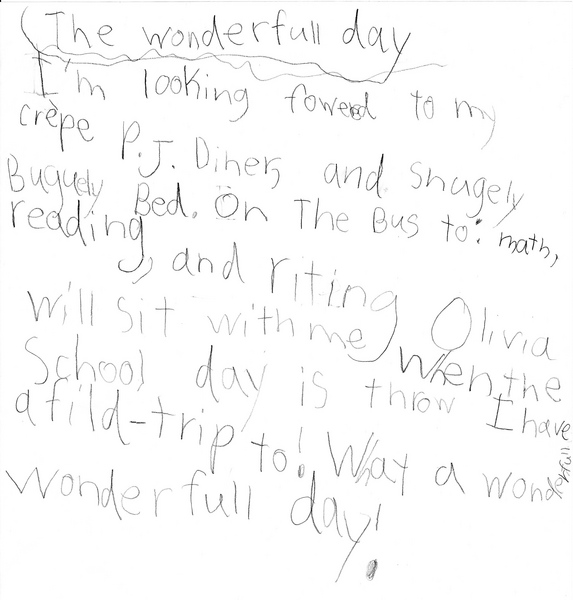 The wonderfull day
I'm looking fowered to my
crèpe P.J. Diner, and snugely
Buguely Bed. On The Bus to: math,
reading, and riting Olivia
will sit with me when the
School day is throw I have
a fild-trip to! What a wonderfull
wonderfull day!